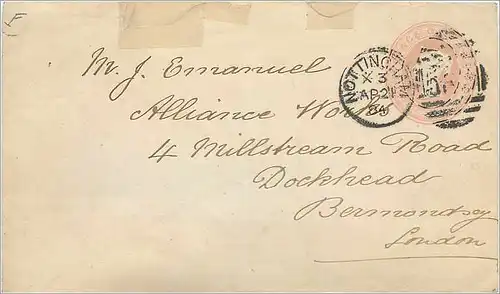 F
M. J. Emanuel
Alliance Works
4 Millstream Road
Dockhead
Bermondsey
London
NOTTINGHAM
X 3
AP 21
84